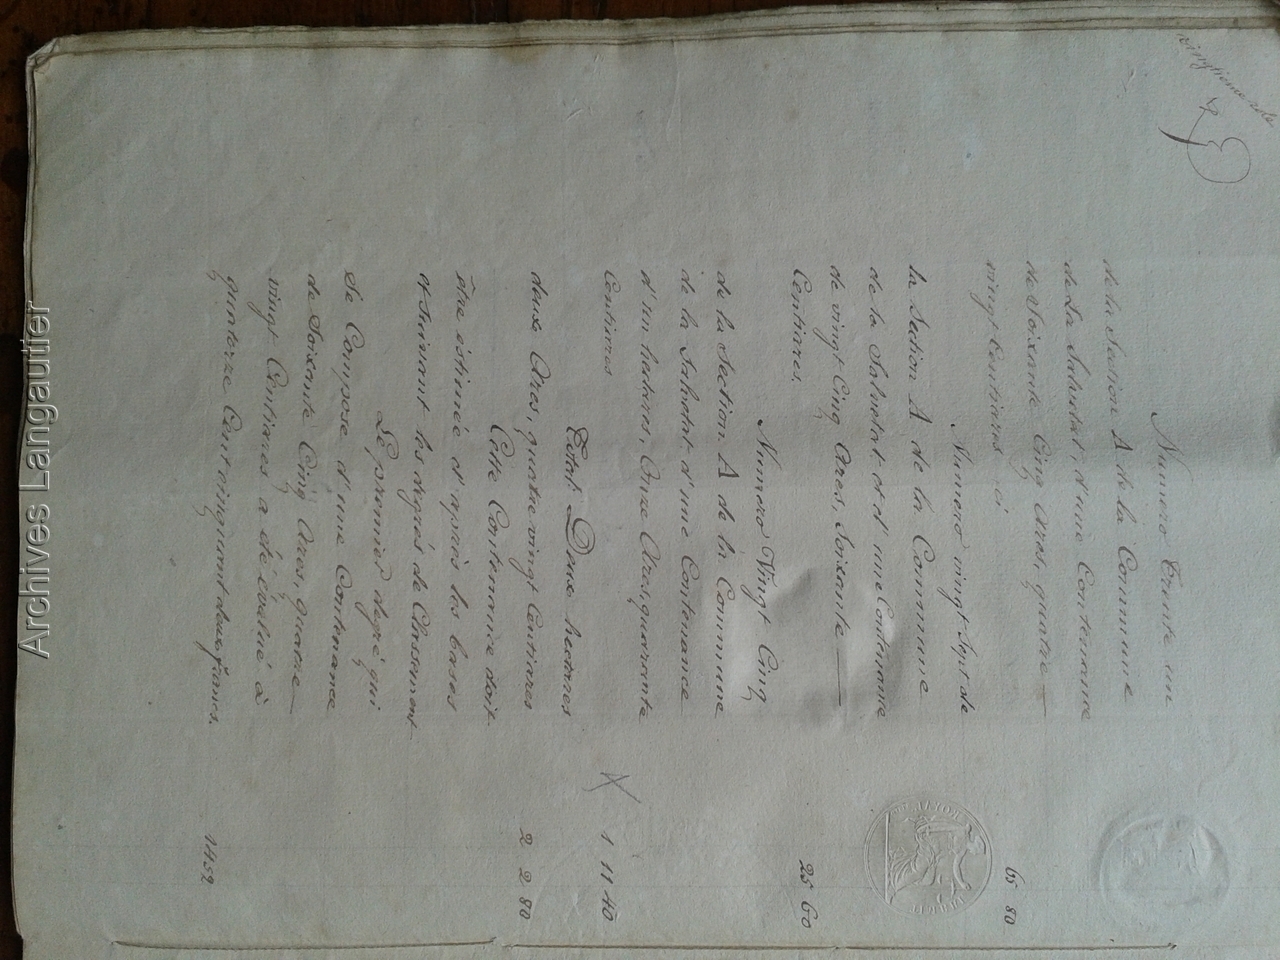 vingtieme role
Numéro Trente un
de la Section A de la Commune
de La Salvetat, d'une Contenance
de Soixante Cinq Ares, quatre
vingt Centiares ci 65 80
Numéro vingt Sept de
la Section A de la Commune
de la Salvetat et d'une Contenance
de vingt Cinq Ares, Soixante
Centiares. 25 60
Numéro Vingt Cinq
de la Section A de la Commune
de la Salvetat, d'une Contenance
d'un hectare, Onze Ares, quarante
Centiares 1 11 40
Total Deux hectares
deux Ares, quatre vingt Centiares 2 2 80
Cette Contenance doit
être estimée d'après les bases
et suivant les degrés de Classement
Le premier degré qui
Se Compose d'une Contenance
de Soixante Cinq Ares, quatre
vingt Centiares a été évalué à
quatorze Cent cinquant deux francs. 1452
Archives Langautier